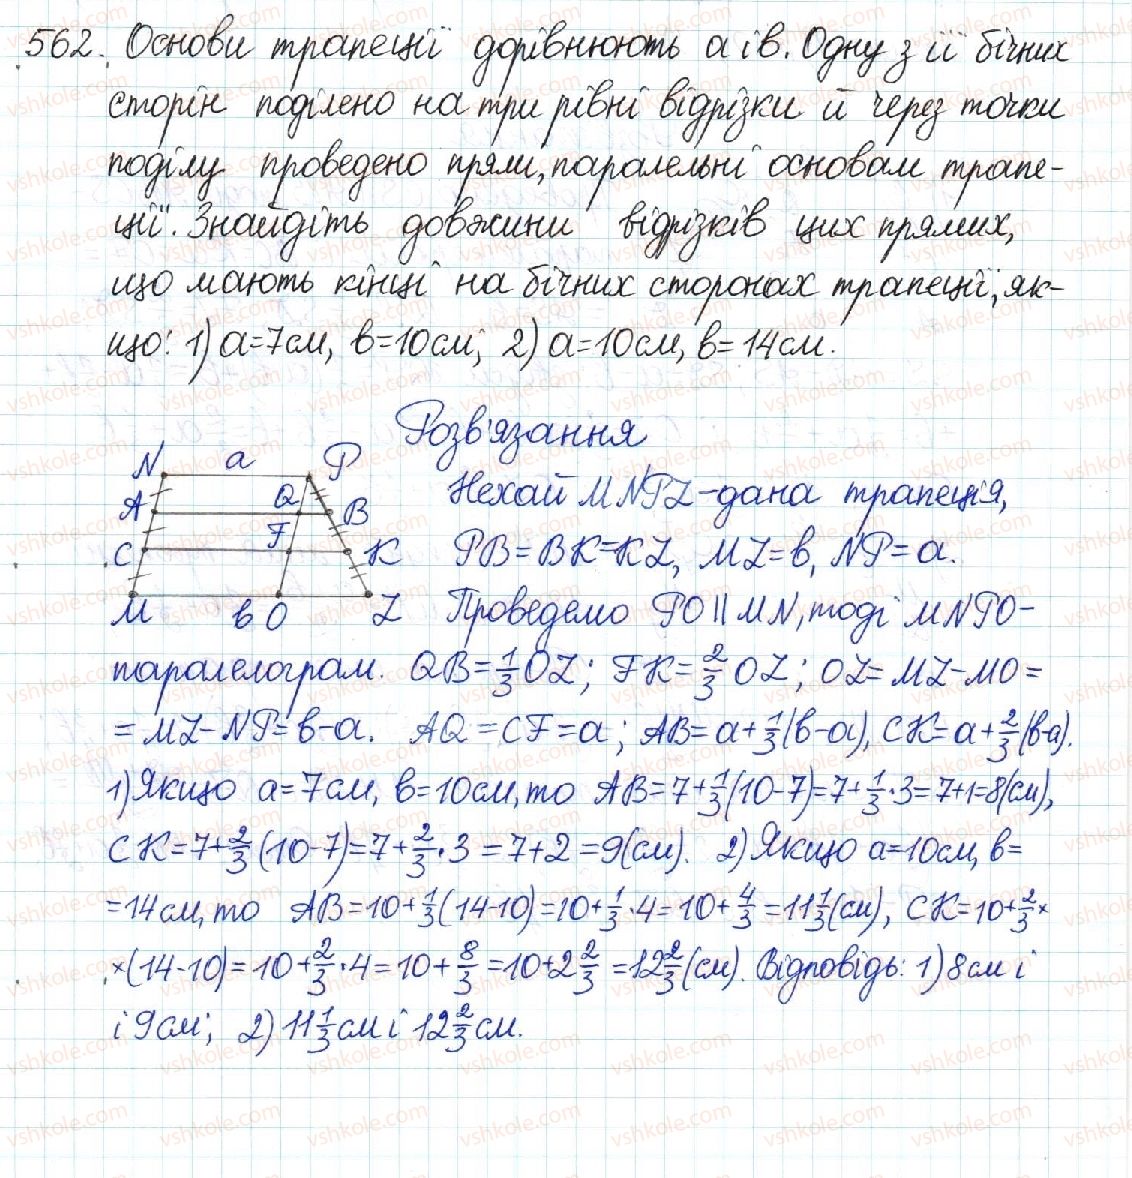 562. Основи трапеції дорівнюють a і b. Одну з її бічних
сторін поділено на три рівні відрізки й через точки
поділу проведено прямі, паралельні основам трапе-
ції. Знайдіть довжини відрізків цих прямих,
що мають кінці на бічних сторонах трапеції, як-
що: 1) a=7см, b=10см; 2) a=10см, b=14см.
Розв'язання
N a P
A Q B
C F K
M b O Z
Нехай MNPZ-дана трапеція,
PB=BK=KZ, MZ=b, NP=a.
Проведемо PO||MN, тоді MNPO-
паралелограм. QB=1/3 OZ; FK=2/3 OZ; OZ=MZ-MO=
=MZ-NP=b-a. AQ=CF=a; AB=a+1/3(b-a), CK=a+2/3(b-a).
1) Якщо a=7см, b=10см, то AB=7+1/3(10-7)=7+1/3·3=7+1=8(см),
CK=7+2/3(10-7)=7+2/3·3=7+2=9(см). 2) Якщо a=10см, b=
=14см, то AB=10+1/3(14-10)=10+1/3·4=10+4/3=11 1/3(см), CK=10+2/3×
×(14-10)=10+2/3·4=10+8/3=10+2 2/3=12 2/3(см). Відповідь: 1) 8см і
і 9см; 2) 11 1/3 см і 12 2/3 см.
vshkole.com